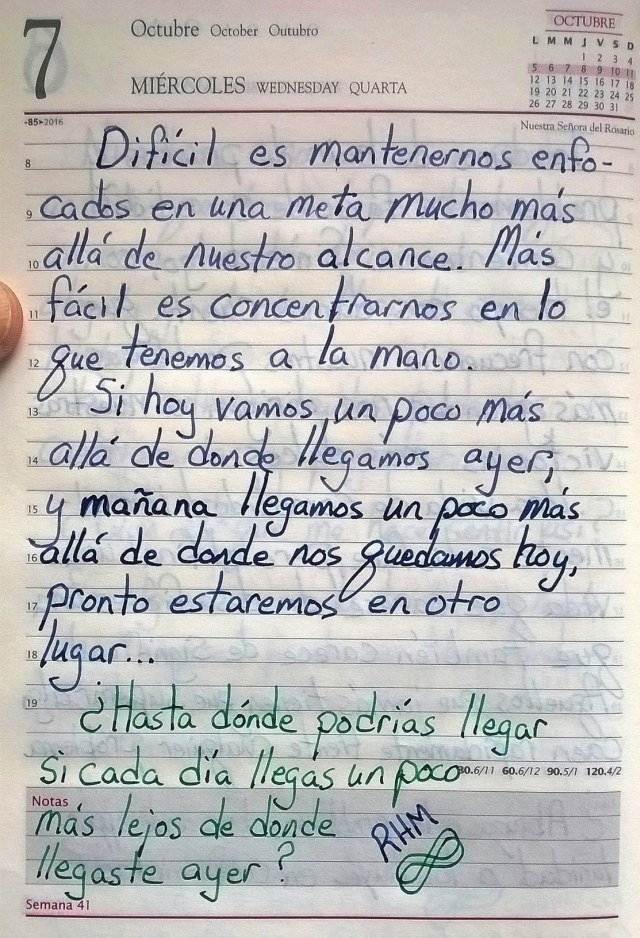 7
Octubre October Outubro
MIÉRCOLES WEDNESDAY QUARTA
OCTUBRE
L M M J V S D
1 2 3 4
5 6 7 8 9 10 11
12 13 14 15 16 17 18
19 20 21 22 23 24 25
26 27 28 29 30 31
-85►2016
Nuestra Señora del Rosario
8 Difícil es mantenernos enfo-
9 cados en una meta mucho más
10 allá de nuestro alcance. Más
11 fácil es concentrarnos en lo
12 que tenemos a la mano.
13 Si hoy vamos un poco más
14 allá de donde llegamos ayer,
15 y mañana llegamos un poco más
16 allá de donde nos quedamos hoy,
17 pronto estaremos en otro
18 lugar...
19 ¿Hasta dónde podrías llegar
si cada día llegas un poco
30.6/11 60.6/12 90.5/1 120.4/2
Notas
más lejos de donde
llegaste ayer?
RHM
Semana 41